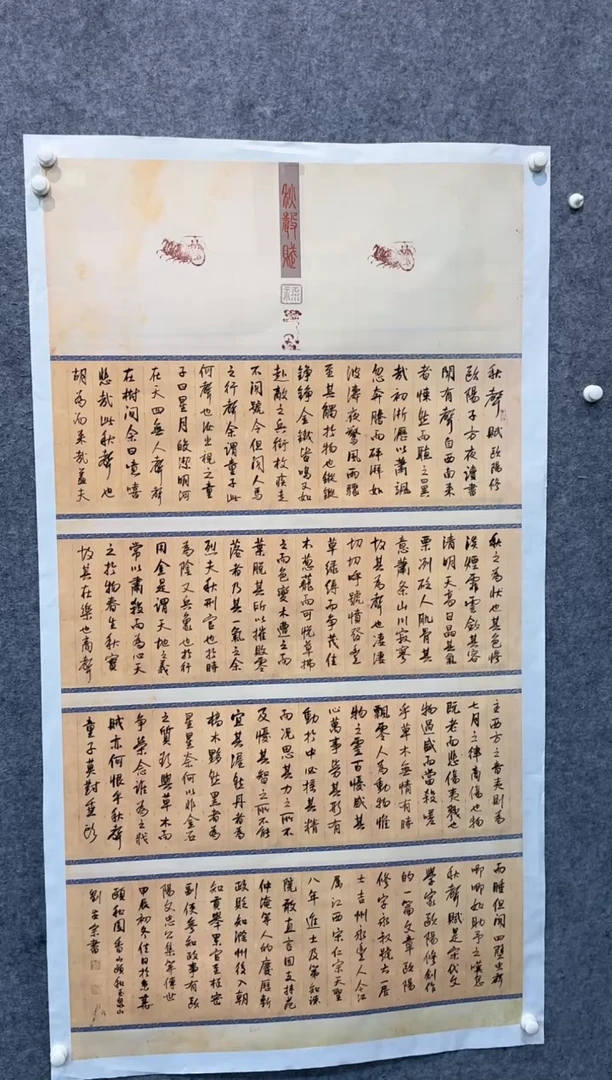 秋聲賦
秋聲賦歐陽修
歐陽子方夜讀書
聞有聲自西南來
者悚然而聽之曰異
哉初淅瀝以蕭颯
忽奔騰而砰湃如
波濤夜驚風雨驟
至其觸於物也鏦鏦
錚錚金鐵皆鳴又如
赴敵之兵銜枚疾走
不聞號令但聞人馬
之行聲余謂童子此
何聲也汝出視之童
子曰星月皎潔明河
在天四無人聲聲
在樹間余曰噫嘻
悲哉此秋聲也
胡為而來哉蓋夫
秋之為狀也其色慘
淡煙霏雲斂其容
清明天高日晶其氣
栗冽砭人肌骨其
意蕭条山川寂寥
故其為聲也淒淒
切切呼號憤發豐
草綠縟而爭茂佳
木葱蘢而可悅草拂
之而色變木遭之而
葉脫其所以摧敗零
落者乃其一氣之余
烈夫秋刑官也於時
為陰又兵象也於行
用金是謂天地之義
常以肅殺而為心天
之於物春生秋實
故其在樂也商聲
主西方之音夷則為
七月之律商傷也物
既老而悲傷夷戮也
物過盛而當殺嗟
乎草木無情有時
飄零人為動物惟
物之靈百憂感其
心萬事勞其形有
動於中必搖其精
而况思其力之所不
及憂其智之所不能
宜其渥然丹者為
槁木黟然黑者為
星星奈何以非金石
之質欲與草木而
爭榮念誰為之戕
賊亦何恨乎秋聲
童子莫對垂頭
而睡但聞四壁虫聲
唧唧如助予之嘆息
秋聲賦是宋代文
學家歐陽修創作
的一篇文章歐陽
修字永叔號六一居
士吉州永豐人今江
属江西宋仁宗天聖
八年進士及第知諫
院敢直言因支持范
仲淹等人的慶歷新
政貶知滁州後入朝
知貢舉累官至樞密
副使參知政事有歐
陽文忠公集等傳世
甲辰初冬佳日於京
頤和園香山頤和玉泉山
劉宗書